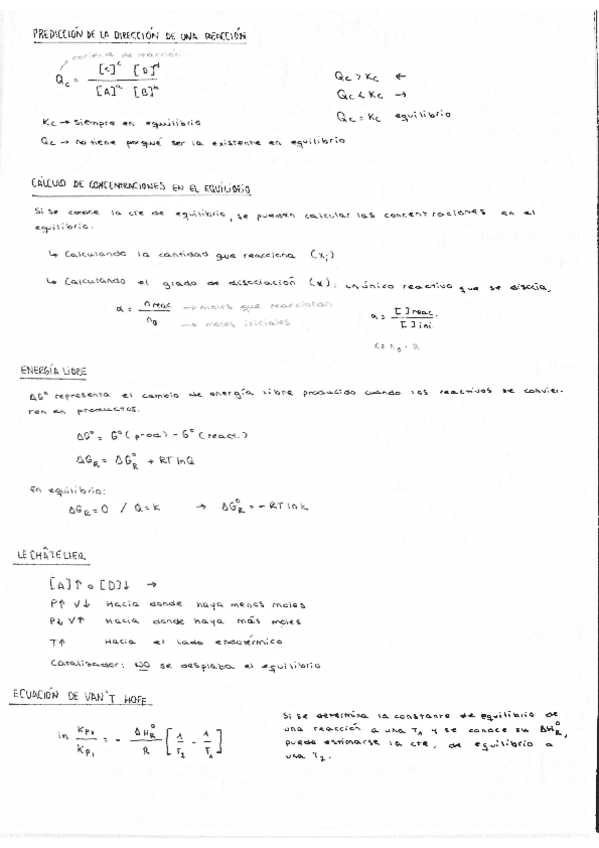 PREDICCIÓN DE LA DIRECCIÓN DE UNA REACCIÓN
cociente de reacción
Qc = [C]^c [D]^d / [A]^a [B]^b
Qc > Kc ←
Qc < Kc →
Qc = Kc equilibrio
Kc → siempre en equilibrio
Qc → no tiene porqué ser la existente en equilibrio
CÁLCULO DE CONCENTRACIONES EN EL EQUILIBRIO
Si se conoce la cte de equilibrio, se pueden calcular las concentraciones en el
equilibrio.
↳ Calculando la cantidad que reacciona (x;)
↳ Calculando el grado de disociación (α): un único reactivo que se disocia,
α = n reac / n₀ → moles que reaccionan
→ moles iniciales
α = [ ] reac. / [ ] ini.
x = n₀ · α
ENERGÍA LIBRE
ΔG° representa el cambio de energía libre producido cuando los reactivos se convier-
ten en productos.
ΔG° = G° (prod) - G° (react.)
ΔG_R = ΔG°_R + RT lnQ
En equilibrio:
ΔG_R = 0 / Q = K → ΔG°_R = - RT ln K
LE CHÂTELIER
[A]↑ o [D]↓ →
P↑ V↓ Hacia donde haya menos moles
P↓ V↑ Hacia donde haya más moles
T↑ Hacia el lado endotérmico
Catalizador: NO se desplaza el equilibrio
ECUACIÓN DE VAN'T HOFF
ln Kp₂ / Kp₁ = - ΔH°_R / R [ 1/T₂ - 1/T₁ ]
Si se determina la constante de equilibrio de
una reacción a una T₁ y se conoce su ΔH°_R,
puede estimarse la cte. de equilibrio a
una T₂.